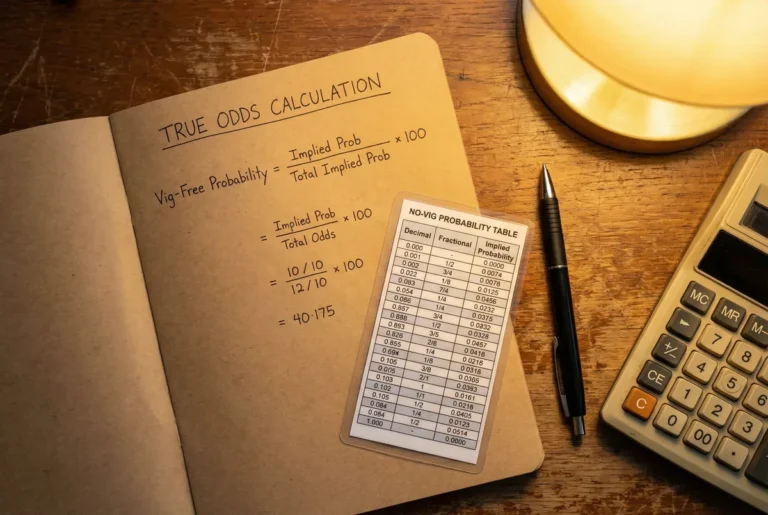 TRUE ODDS CALCULATION
Vig-Free Probability = Implied Prob / Total Implied Prob × 100
= Implied Prob / Total Odds × 100
= 10 / 10 / 12 / 10 × 100
= 40·175
NO-VIG PROBABILITY TABLE
Decimal Fractional Implied Probability
0.000 - 0.0000
0.001 1/2 0.0074
0.002 3/4 0.0078
0.022 1/8 0.0125
0.083 7/4 0.0456
0.054 1/4 0.0232
0.086 1/4 0.0375
0.857 3/4 0.0232
0.888 1/2 0.0328
0.893 3/5 0.0457
0.826 2/6 0.0416
0.855 1/4 0.0216
1/8 0.0318
0.105 3/8 0.0365
2/1 0.0393
0.103 1 0.0161
0.102 1/1 0.0218
0.105 1/2 0.0405
0.084 1/4 0.0123
0.084 1/2 0.0514
1.000 - 0.0000
MC MR M-
7 8
+/- 4 5
CE 1 2 3
C 0 00 ·